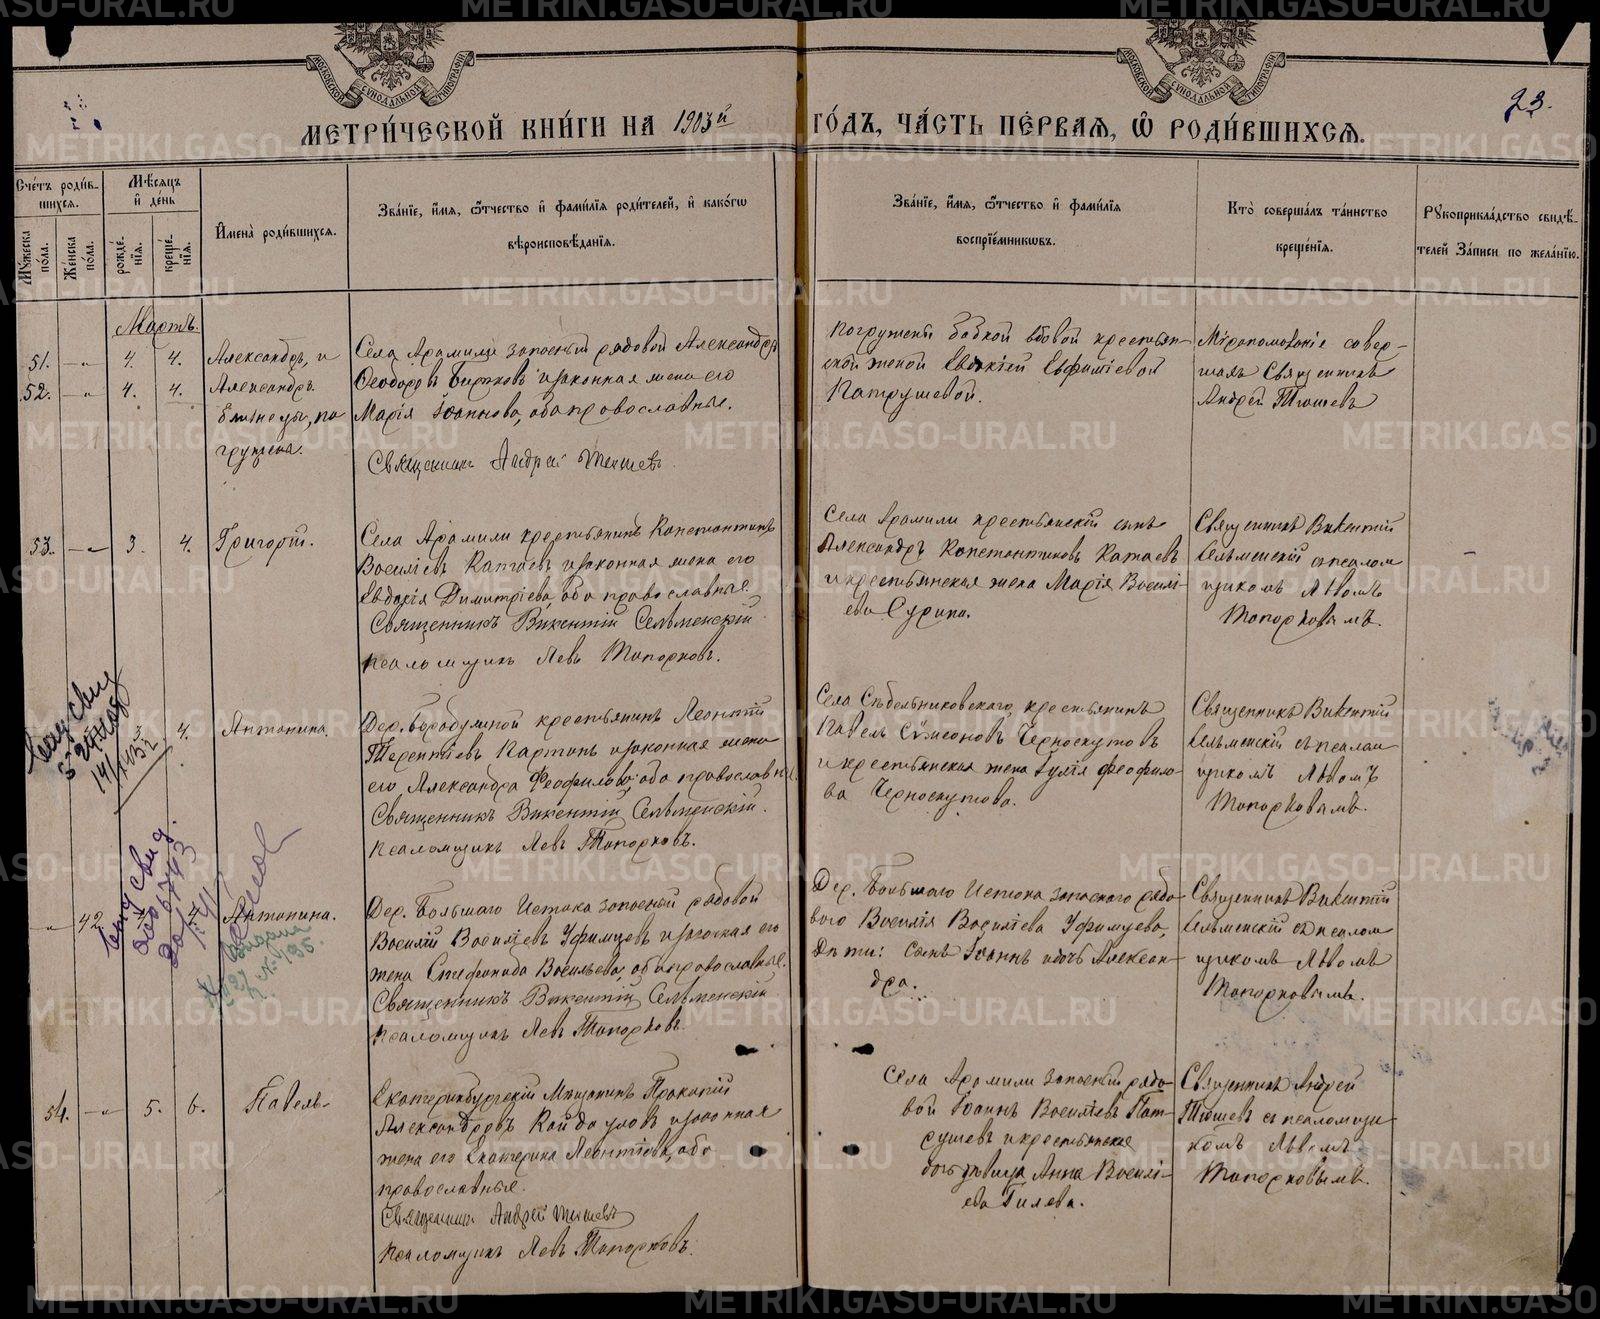 МОСКОВСКОЙ СѴНОДАЛЬНОЙ ТИПОГРАФІИ
МОСКОВСКОЙ СѴНОДАЛЬНОЙ ТИПОГРАФІИ
23.
МЕТРИ́ЧЕСКОЙ КНИ́ГИ НА 1903й ГО́ДЪ, ЧА́СТЬ ПЕ́РВАѦ, Ѽ РОДИ́ВШИХСѦ.
Сче́тъ роди́вшихсѧ.
Мѣ́сѧцъ и҆ де́нь
И҆мена̀ роди́вшихсѧ.
Зва́нїе, и҆́мѧ, ѻ҆́тчество и҆ фами́лїѧ роди́телей, и҆ како́гѡ
вѣроисповѣ́данїѧ.
Зва́нїе, и҆́мѧ, ѻ҆́тчество и҆ фами́лїѧ
воспрїе́мникѡвъ.
Кто̀ соверша́лъ та́инство
креще́нїѧ.
Рꙋкоприкла́дство свидѣ́-
телей за́писи по жела́нїю.
Мꙋ́жеска по́ла.
Же́нска по́ла.
рожде́нїѧ.
креще́нїѧ.
Мартъ.
51. 4. 4. Александръ, и
52. 4. 4. Александръ
близнецы, по
гружена.
Села Арамили запасный рядовой Александръ
Ѳеодоровъ Бирюковъ и законная жена его
Марія Іоаннова, оба православные.
Священникъ Андрей Тюшевъ
погружены бабкой вдовой крестьян-
ской женой Евдокіей Евфиміевой
Патрушевой.
Мѵропомазаніе совер-
шалъ Священникъ
Андрей Тюшевъ
53. 3. 4. Григорій.
Села Арамили крестьянинъ Константинъ
Василіевъ Катаевъ и законная жена его
Евдокія Димитріева, оба православные.
Священникъ Викентій Сельменскій
Псаломщикъ Левъ Топорковъ.
Села Арамили крестьянскій сынъ
Александръ Константиновъ Катаевъ
и крестьянская жена Марія Василі-
ева Сурина.
Священникъ Викентій
Сельменскій съ псалом
щикомъ Львомъ
Топорковымъ.
3 4. Антонина.
Дер. Бородулиной крестьянинъ Леонтій
Терентіевъ Картинъ и законная жена
его Александра Феофилова, оба православные.
Священникъ Викентій Сельменскій.
Псаломщикъ Левъ Топорковъ.
Села Сѣдельниковскаго крестьянинъ
Павелъ Сѵмеоновъ Черноскутовъ
и крестьянская жена Іулія Феофило-
ва Черноскутова.
Священникъ Викентій
Сельменскій съ псалом
щикомъ Львомъ
Топорковымъ.
42 4. Антонина.
Дер. Большаго Истока запасный рядовой
Василій Василіевъ Уфимцевъ и законная его
жена Стефанида Васильева, оба православные.
Священникъ Викентій Сельменскій
Псаломщикъ Левъ Топорковъ.
Дер. Большаго Истока запаснаго рядо-
вого Василія Василіева Уфимцева,
дѣти: сынъ Іоаннъ и дочь Алексан-
дра.
Священникъ Викентій
Сельменскій съ псалом
щикомъ Львомъ
Топорковымъ.
54. 5. 6. Павелъ
Екатеринбургскій Мѣщанинъ Прокопій
Александровъ Кайдауловъ и законная
жена его Екатерина Леонтіева, оба
православные.
Священникъ Андрей Тюшевъ
Псаломщикъ Левъ Топорковъ.
Села Арамили запасный рядо-
вой Іоаннъ Василіевъ Пат-
рушевъ и крестьянская
дѣвица Анна Василі-
ева Гилева.
Священникъ Андрей
Тюшевъ съ псаломщи
комъ Львомъ
Топорковымъ.
METRIKI.GASO-URAL.RU